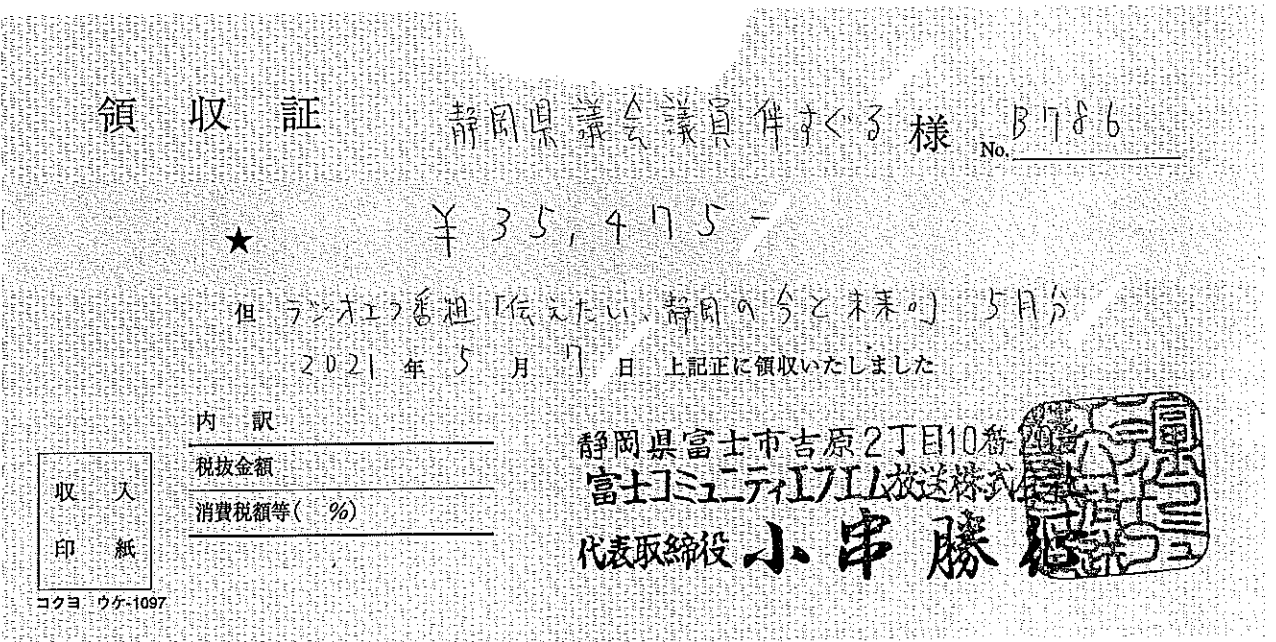 領収証 静岡県議会議員 伴すぐる 様 No. B786
★ ¥35,475-
但 ラジオエフ番組「伝えたい、静岡の今と未来の」 5月分
2021年5月7日 上記正に領収いたしました
内訳
税抜金額
消費税額等( %)
収入
印紙
静岡県富士市吉原2丁目10番20号
富士コミュニティエフエム放送株式会社
代表取締役 小串勝
コクヨ ウケ-1097